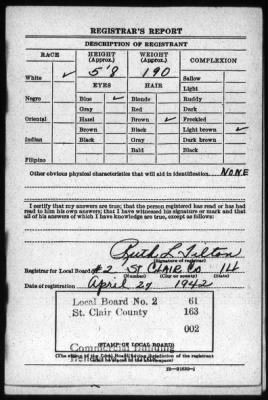 REGISTRAR'S REPORT
DESCRIPTION OF REGISTRANT
RACE HEIGHT (Approx.) WEIGHT (Approx.) COMPLEXION
5'8 190
White ✓ Sallow
EYES HAIR Light
Negro Blue ✓ Blonde Ruddy
Gray Red Dark
Oriental Hazel Brown ✓ Freckled
Brown Black Light brown ✓
Indian Black Gray Dark brown
Bald Black
Filipino
Other obvious physical characteristics that will aid in identification NONE
I certify that my answers are true; that the person registered has read or has had
read to him his own answers; that I have witnessed his signature or mark and that
all of his answers of which I have knowledge are true, except as follows:
Ruth L. Tilton
(Signature of registrar)
Registrar for Local Board #2 St Clair Co
(Number) (City or county) (State)
Date of registration April 27 1942
Local Board No. 2 61
St. Clair County 163
002
Commercial Building
(STAMP OF LOCAL BOARD)
(The stamp of the Local Board having jurisdiction of the registrant